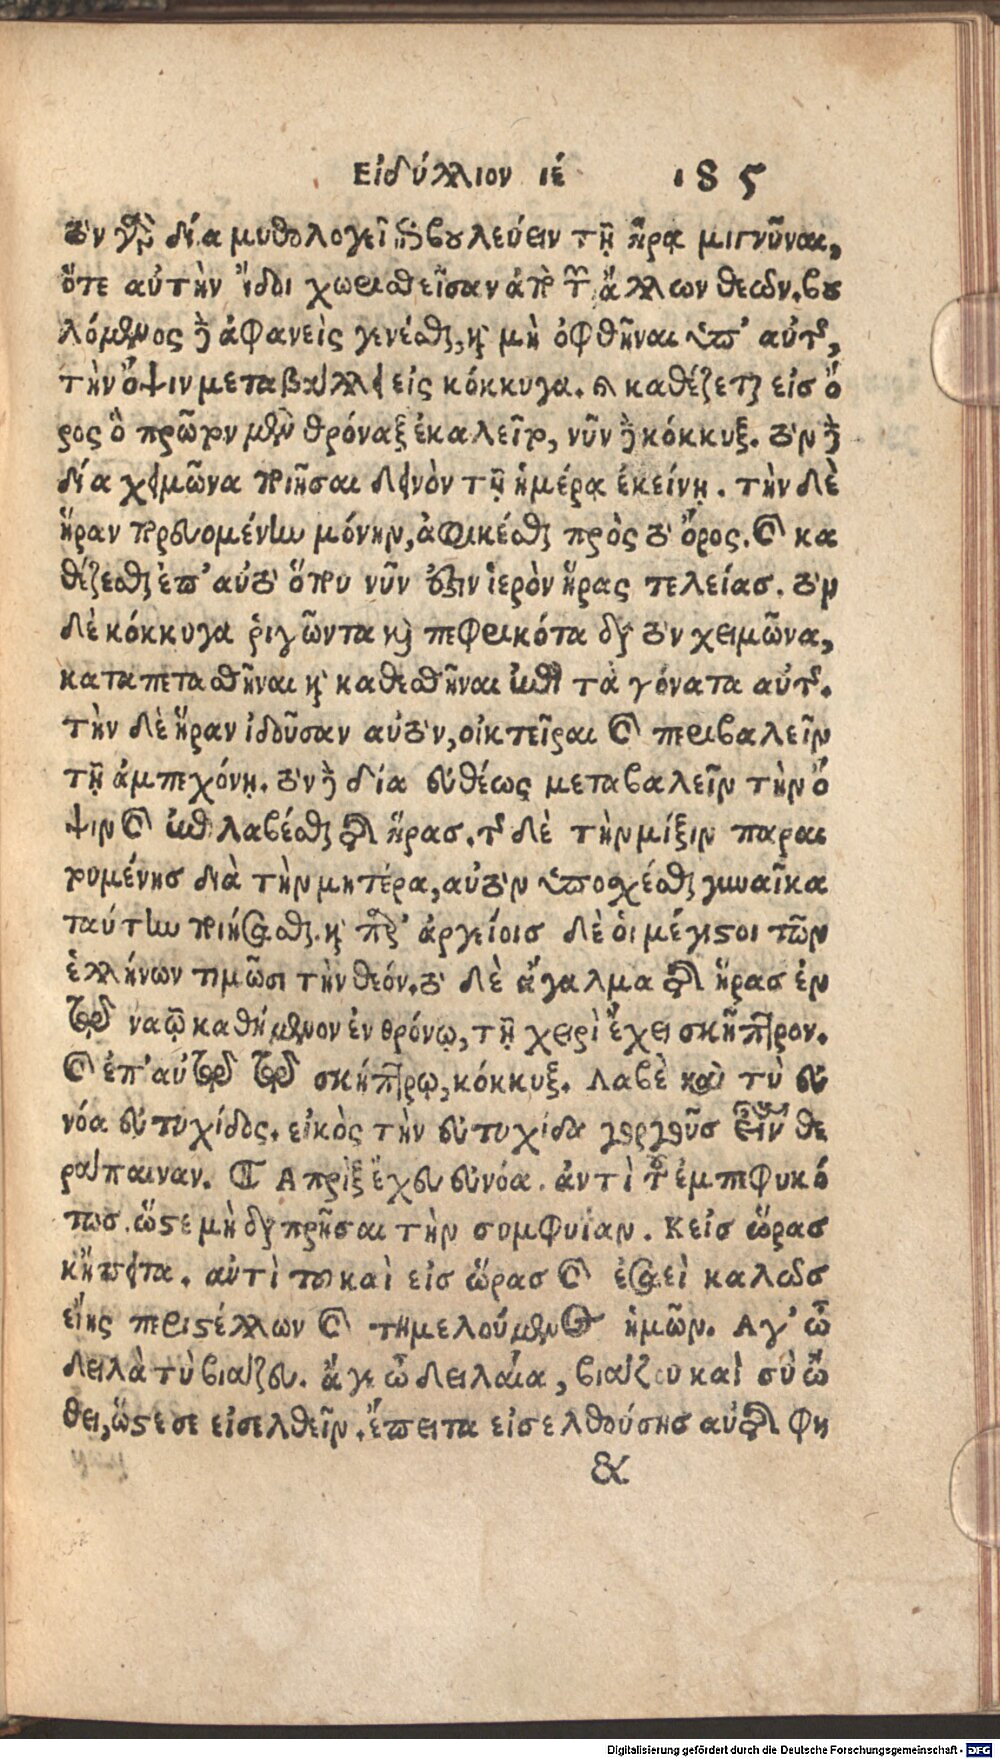 Εἰδύλλιον ιέ 185
τὸν γὰρ δία μυθολογεῖ ἐπιβουλεύειν τῇ ἥρᾳ μιγνῦναι,
ὅτε αὐτὴν ἴδοι χωρισθεῖσαν ἀπὸ τῶν ἄλλων θεῶν. βου
λόμενος δὲ ἀφανεὶς γενέσθαι, καὶ μὴ ὀφθῆναι ὑπ' αὐτῆς,
τὴν ὄψιν μεταβάλλει εἰς κόκκυγα. καὶ καθέζεται εἰσ ὄ
ρος ὃ πρῶτον μὲν θρόναξ ἐκαλεῖτο, νῦν δὲ κόκκυξ. τὸν δὲ
δία χειμῶνα ποιῆσαι δεινὸν τῇ ἡμέρᾳ ἐκείνῃ. τὴν δὲ
ἥραν πορευομένην μόνην, ἀφικέσθαι πρὸς τὸ ὄρος. καὶ κα
θέζεσθαι ἐπ' αὐτὸ ὅπου νῦν ἐστιν ἱερὸν ἥρας τελείασ. τὸν
δὲ κόκκυγα ῥιγῶντα καὶ πεφρικότα διὰ τὸν χειμῶνα,
καταπετασθῆναι καὶ καθεσθῆναι ἐπὶ τὰ γόνατα αὐτῆς.
τὴν δὲ ἥραν ἰδοῦσαν αὐτὸν, οἰκτεῖραι καὶ περιβαλεῖν
τῇ ἀμπεχόνῃ. τὸν δὲ δία εὐθέως μεταβαλεῖν τὴν ὄ
ψιν καὶ ἐπιλαβέσθαι τῆς ἥρασ. τῆς δὲ τὴν μίξιν παραι
τουμένησ διὰ τὴν μητέρα, αὐτὸν ὑποσχέσθαι γυναῖκα
ταύτην ποιήσασθαι. καὶ παρ' ἀργείοισ δὲ οἱ μέγιστοι τῶν
ἑλλήνων τιμῶσι τὴν θεόν. τὸ δὲ ἄγαλμα τῆς ἥρασ ἐν
τῷ ναῷ καθήμενον ἐν θρόνῳ, τῇ χειρὶ ἔχει σκῆπτρον.
καὶ ἐπ' αὐτῷ τῷ σκήπτρῳ, κόκκυξ. Λαβὲ καὶ τὺ εὐ
νόα εὐτυχίδος. εἰκὸς τὴν εὐτυχίδα γοργοῦσ εἶναι θε
ράπαιναν. ¶ Απρὶξ ἔχευ εὐνόα. ἀντὶ τοῦ ἐμπεφυκό
τωσ. ὥστε μὴ διαπρῆσαι τὴν συμφυΐαν. Κεἰσ ὥρασ
κἤπειτα. αὐτὶ τοῦ καὶ εἰσ ὥρασ καὶ ἐσαεὶ καλῶσ
εἴης περιστέλλων καὶ τημελούμενος ἡμῶν. Αγ' ὦ
δειλὰ τὺ βιάζευ. ἄγε ὦ δειλαία, βιάζου καὶ σὺ ὤ
θει, ὥστε σε εἰσελθεῖν. ἔπειτα εἰσελθούσησ αὐτῆς φη
&
Digitalisierung gefördert durch die Deutsche Forschungsgemeinschaft - DFG